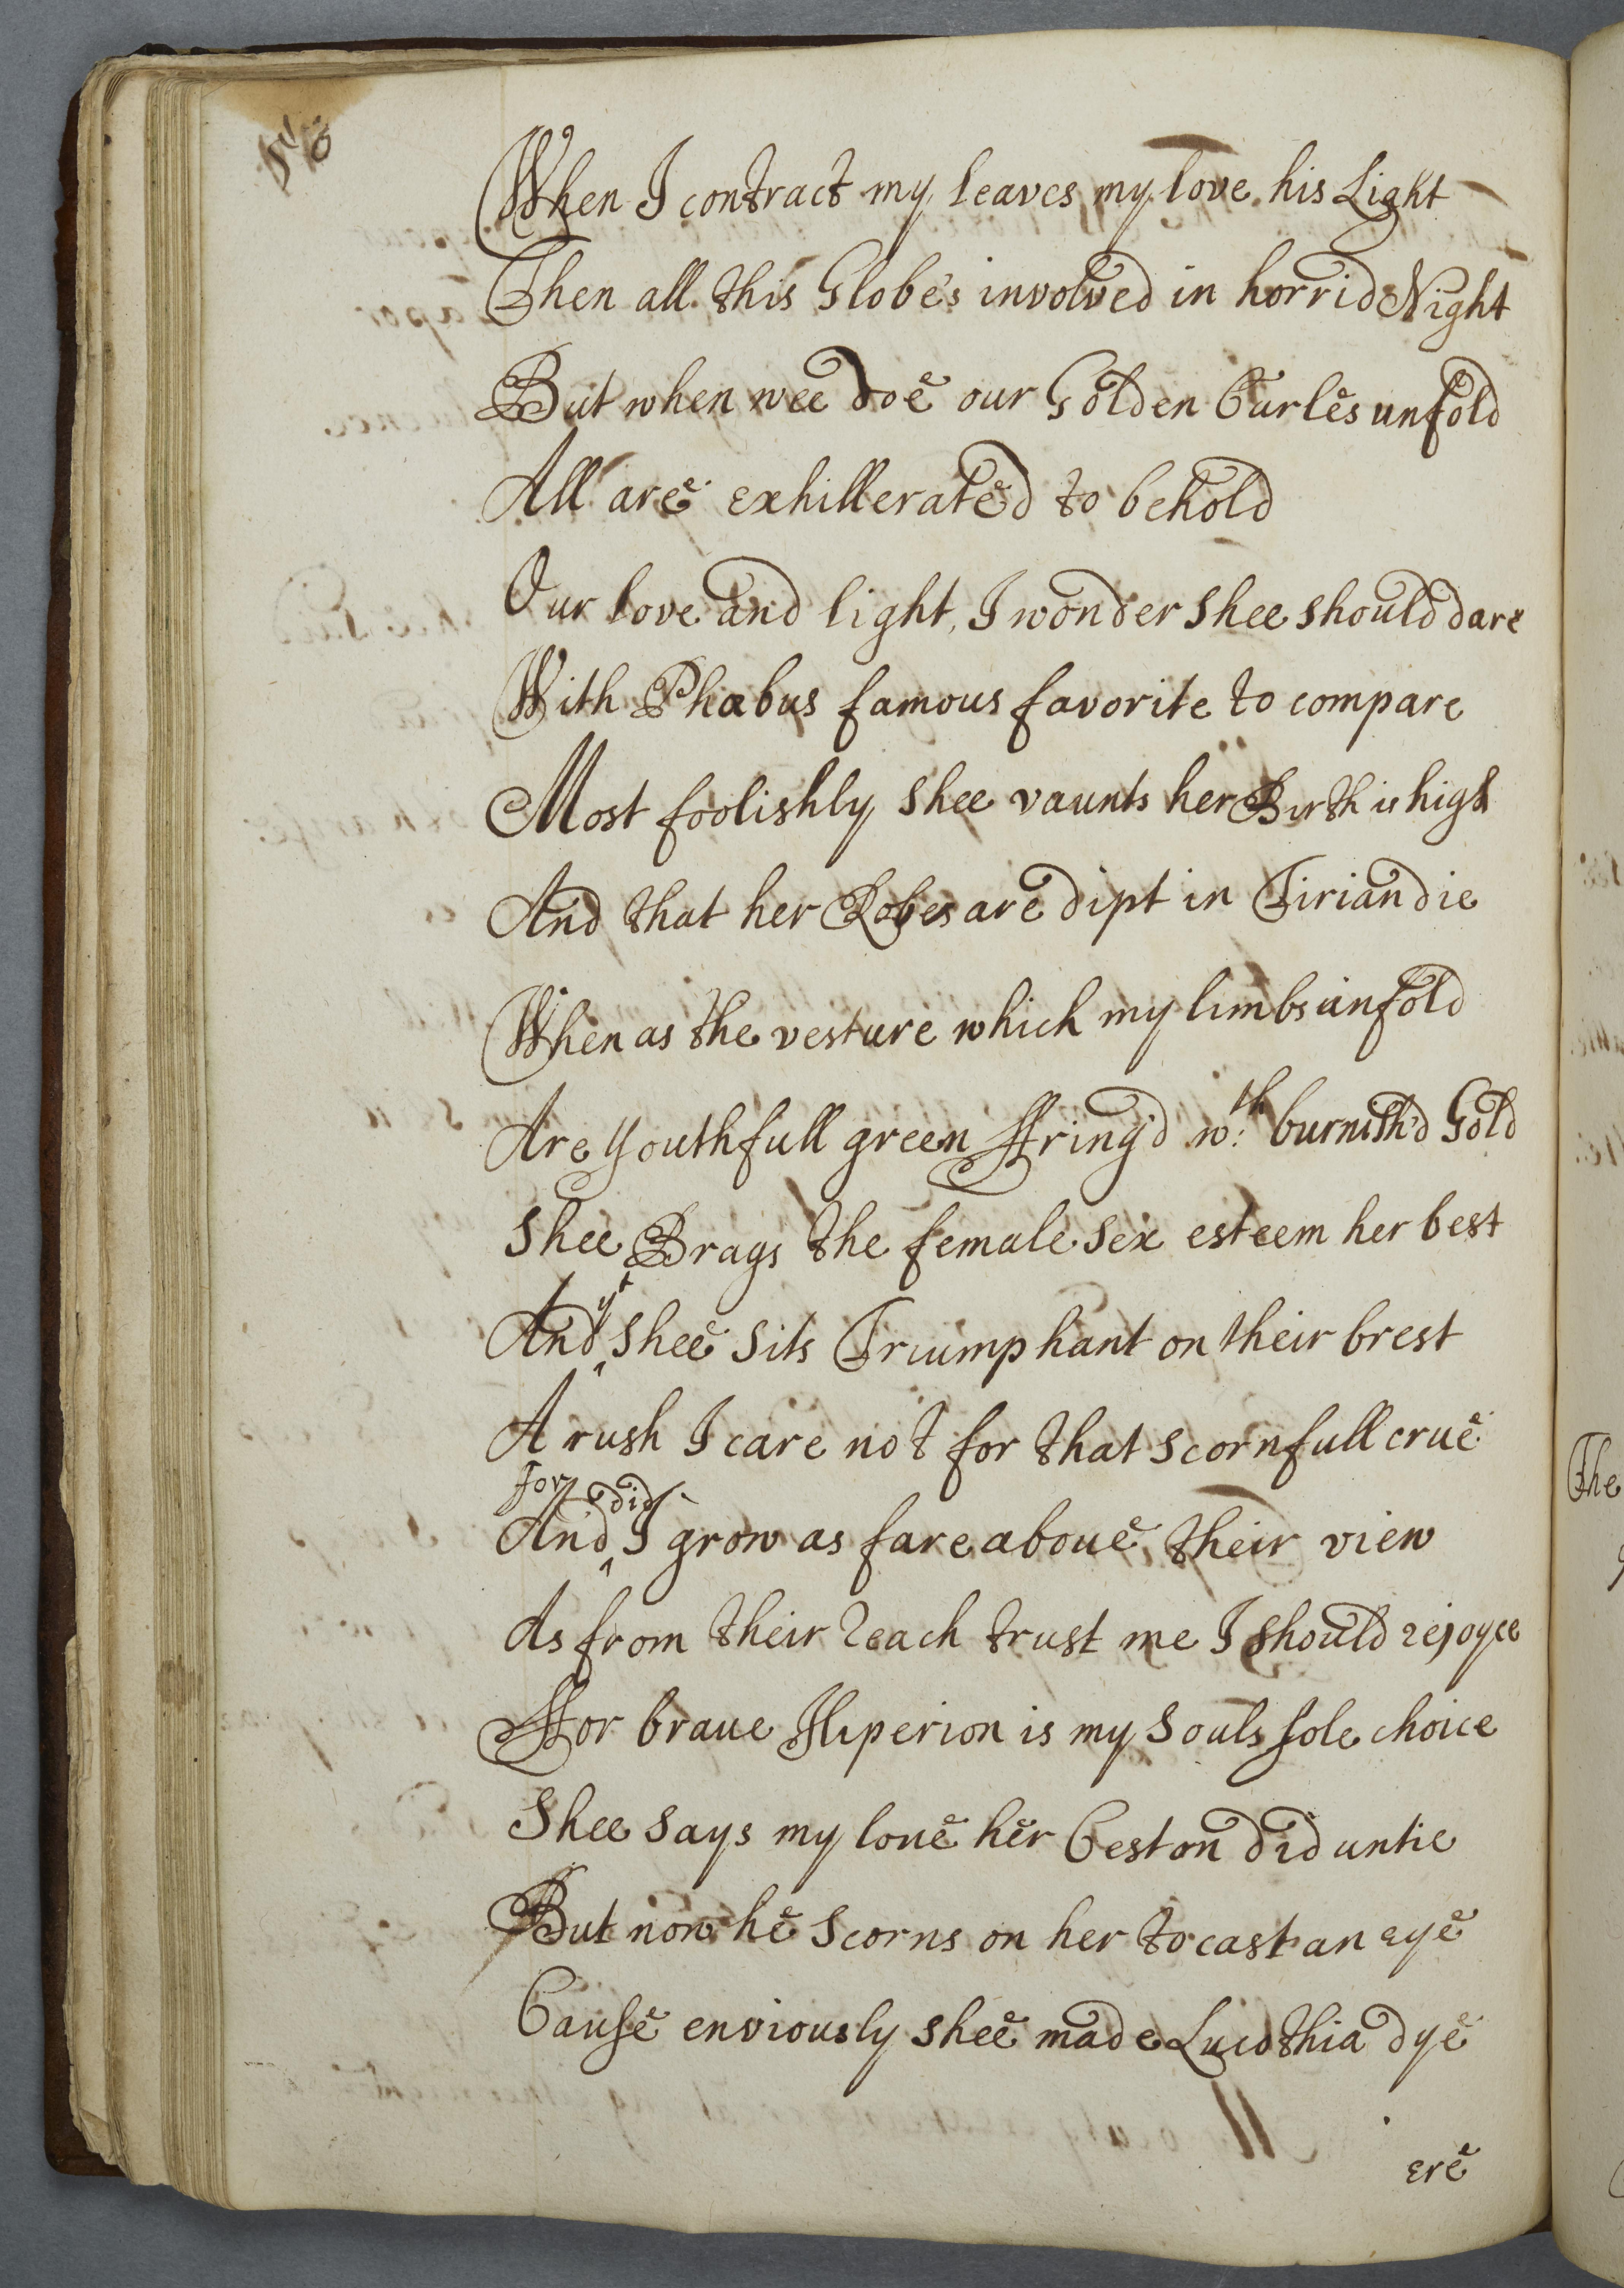 When I contract my leaves my love his Light
Then all this Globe's involved in horrid Night
But when wee doe our Golden Curles unfold
All are exhillerated to behold
Our love and light, I wonder shee should dare
With Phœbus famous favorite to compare
Most foolishly shee vaunts her Birth is high
And that her Robes are dipt in Tirian die
When as the vesture which my limbs unfold
Are youthfull green ffring'd wth: burnish'd Gold
Shee Brags the female sex esteem her best
And yt shee sits Triumphant on their brest
A rush I care not for that scornfull crue
For did
And I grow as fare aboue their view
As from their reach trust me I should rejoyce
ffor braue Hiperion is my souls sole choice
Shee says my loue her Ceston did untie
But now he scorns on her to cast an eye
Cause enviously shee made Lucothia dye
ere
The